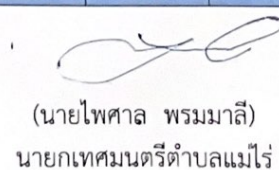 (นายไพศาล พรมมาลี)
นายกเทศมนตรีตำบลแม่ไร่